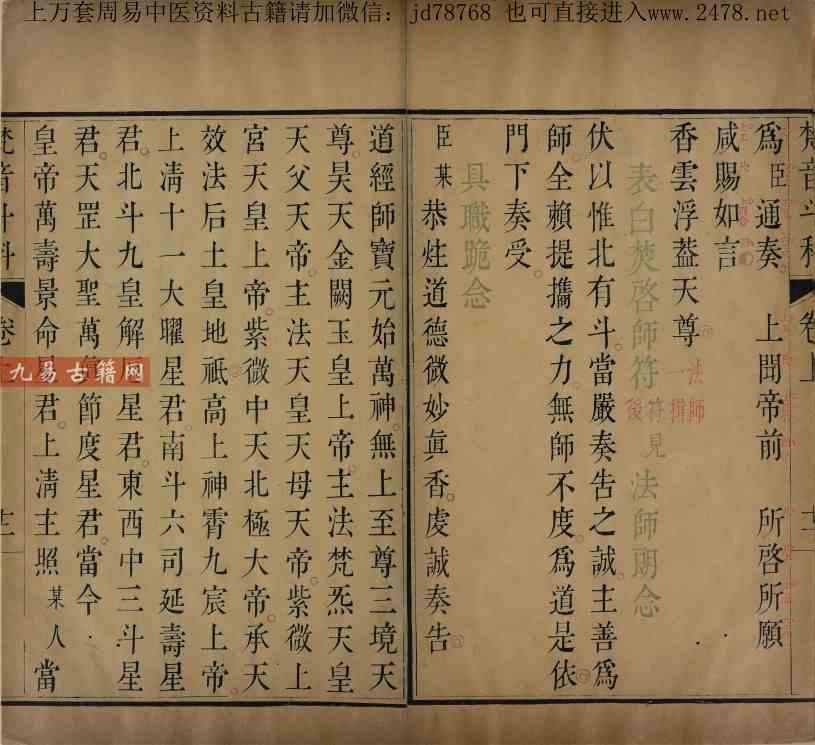 上万套周易中医资料古籍请加微信：jd78768 也可直接进入www.2478.net
梵音斗科 卷上
爲臣通奏 上聞帝前 所啓所願
咸賜如言
香雲浮蓋天尊 法師一揖
表白焚啓師符 符見後 法師朗念
伏以惟北有斗。當嚴奏告之誠。主善爲
師。全賴提攜之力。無師不度。爲道是依
門下奏受。
具職跪念
臣某恭炷道德微妙眞香。虔誠奏告
道經師寶元始萬神。無上至尊三境天
尊。昊天金闕玉皇上帝。主法梵炁天皇
天父天帝。主法天皇天母天帝。紫微上
宮天皇上帝。紫微中天北極大帝。承天
效法后土皇地祇。高上神霄九宸上帝。
上淸十一大曜星君。南斗六司延壽星
君。北斗九皇解厄星君。東西中三斗星
君。天罡大聖萬眞節度星君。當今
皇帝萬壽景命星君。上淸主照某人當
梵音斗科
九易古籍网